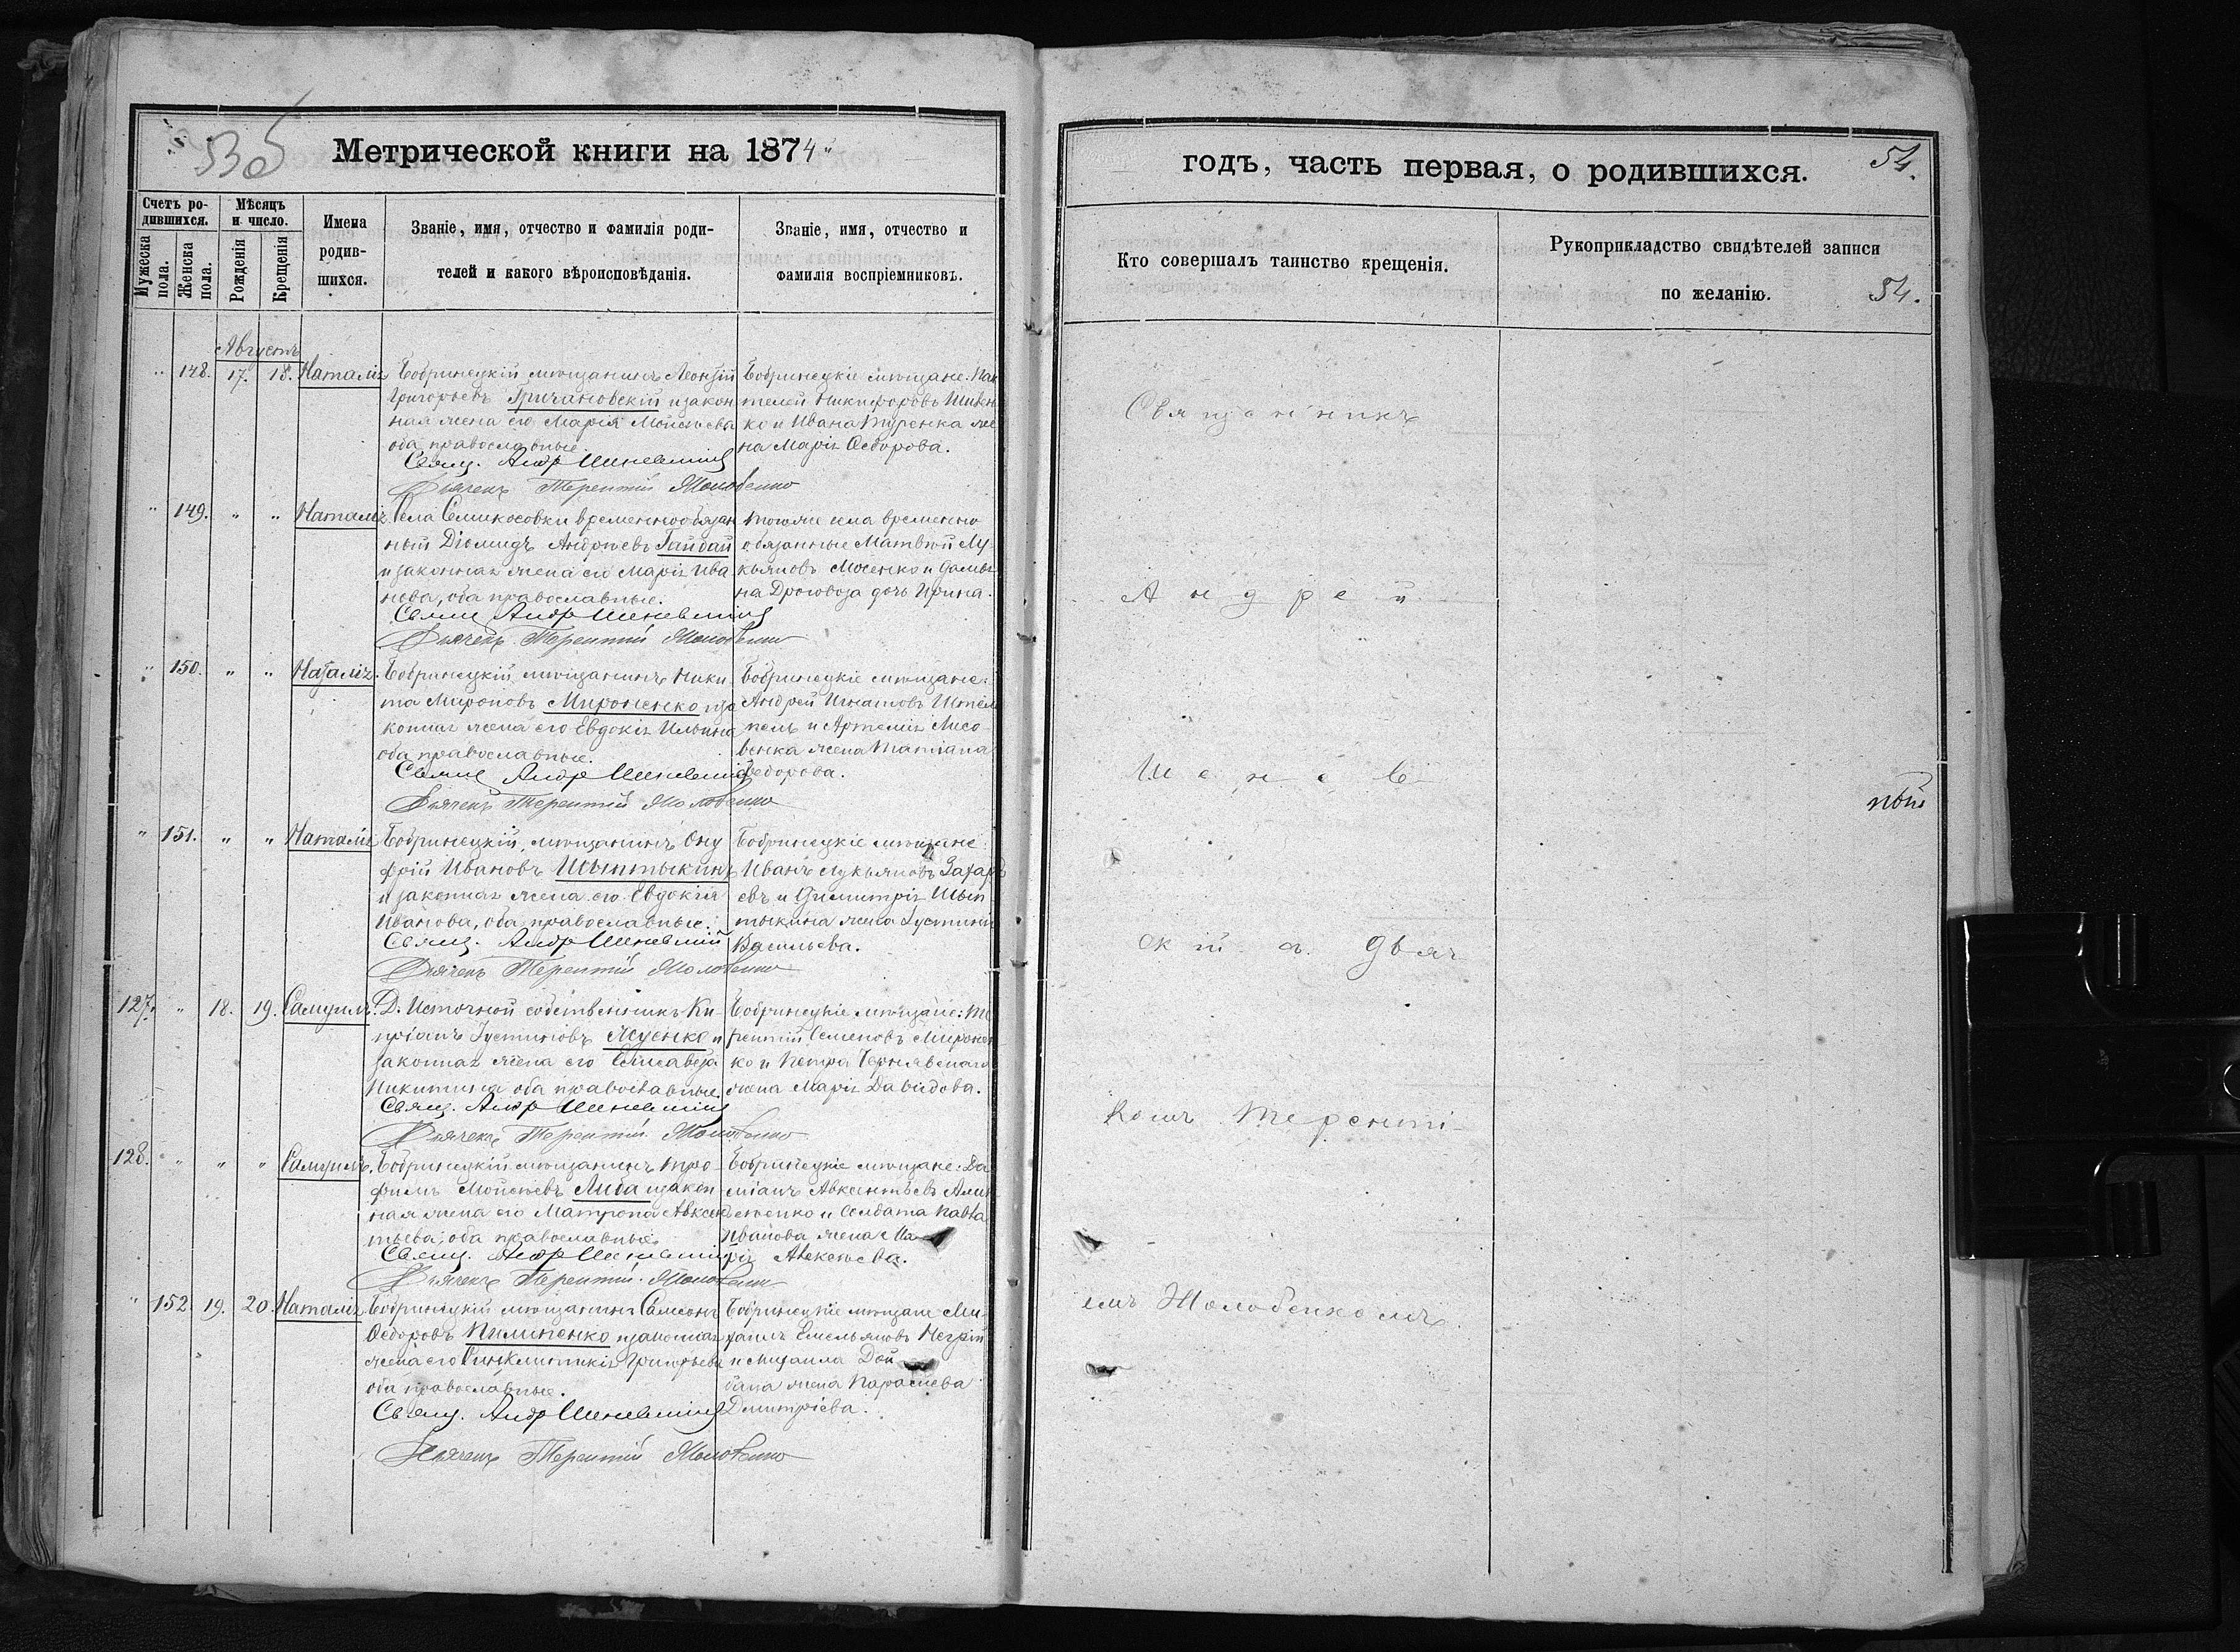 53 об
Метрической книги на 1874
Счетъ ро-
дившихся.
Мужеска пола.
Женска пола.
Мѣсяцъ
и число.
Рожденія
Крещенія
Имена
родив-
шихся.
Званіе, имя, отчество и фамилія роди-
телей и какого вѣроисповѣданія.
Званіе, имя, отчество и
фамилія воспріемниковъ.
Августъ
" 148. 17. 18. Наталія
Бобринецкій мѣщанинъ Леонтій
Григорьевъ Гричановскій и закон
ная жена его Марія Мойсеева
оба православные.
Свящ. Андр Шеневскій
Дьячекъ Терентій Жолобенко
Бобринецкіе мѣщане: Пан
телей Никифоровъ Шевчен
ко и Ивана жe
на Марія Ѳедорова.
" 149. " " Наталія
Села Семикосовки временнообязан
ный Діомидъ Андреевъ Гайдай
и законная жена его Марія Ива
нова, оба православные.
Свящ Андр Шеневскій
Дьячекъ Терентій Жолобенко
тогоже села временно
обязанные Матвѣй Лу
кьяновъ Мосенко и
на Дроговоза дочь Ирина.
" 150. " " Наталія.
Бобринецкій мѣщанинъ Ники
та Мироновъ Мироненко и за
конная жена его Евдокія Ильина
оба православные.
Свящ Андр Шеневскій
Дьячекъ Терентій Жолобенко
Бобринецкіе мѣщане:
Андрей Игнатовъ
и Артемія Лисо
венка жена Татіана
Ѳедорова.
" 151. " " Наталія
Бобринецкій мѣщанинъ Ону
фрій Ивановъ Шыптыкинъ
и законная жена его Евдокія
Иванова, оба православные.
Свящ. Андр Шеневскій
Дьячекъ Терентій Жолобенко
Бобринецкіе мѣщане:
Иванъ Лукьяновъ Захарь
евъ и Димитрія Шып
тыкина жена Іустинія
Васильева.
127. " 18. 19. Самуилъ.
Д. Источной собственникъ Ки-
пріанъ Іустиновъ Яценко и
законная жена его Елисавета
Никитина оба православные.
Свящ. Андр Шеневскій
Дьячекъ Терентій Жолобенко
Бобринецкіе мѣщане: Те
рентій Семеновъ Миронен
ко и Петра Чернявскаго
жена Марія Давидова.
128. " " " Самуилъ.
Бобринецкій мѣщанинъ Тро-
фимъ Мойсеевъ Либа и закон
ная жена его Матрона Авксен
тьева, оба православные.
Свящ. Андр Шеневскій
Дьячекъ Терентій Жолобенко
Бобринецкіе мѣщане: Да
міанъ Авксентьевъ
и Солдата Павла
Иванова жена Ма
рія
" 152. 19. 20. Наталія
Бобринецкій мѣщанинъ Самсонъ
Ѳедоровъ Пилипенко и законная
жена его Синклитикія Григорьева
оба православные.
Свящ. Андр Шеневскій
Дьячекъ Терентій Жолобенко
Бобринецкіе мѣщане Ми-
хаилъ Емельяновъ
и Михаила Дол
бана жена Параскева
Дмитріева.
годъ, часть первая, о родившихся.
54.
Кто совершалъ таинство крещенія.
Рукоприкладство свидѣтелей записи
по желанію.
54.
Священникъ
Андрей
Шенев
скій съ Дьяч
комъ Терентi-
емъ Жолобенкомъ.